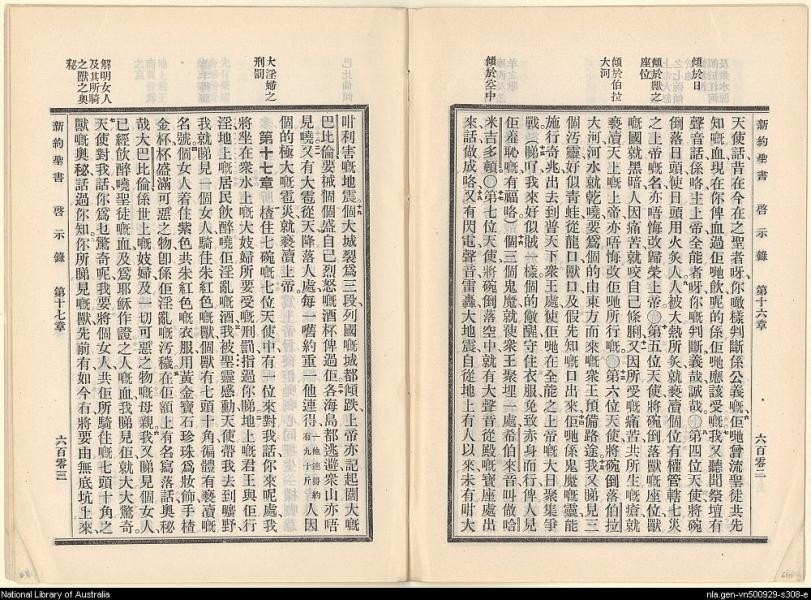 新約聖書 啓示錄 第十六章 六百零二
傾於日
傾於獸之座位
傾於伯拉大河
傾於空中
天使話昔在今在之聖者呀你噉樣判斷係公義嘅佢哋曾流聖徒共先
知嘅血現在你俾血過佢哋飲呢的係佢哋應該受嘅我又聽聞祭壇有
聲音話係咯主上帝全能者呀你嘅判斷義哉誠哉第四位天使將碗
倒落日頭使日頭用火炙人人被大熱所炙就褻瀆個位有權管轄七災
之上帝嘅名亦唔悔改歸榮上帝第五位天使將碗倒落獸嘅座位獸
嘅國就黑暗人因痛苦就咬自己條脷又因所受嘅痛苦共所生嘅瘡就
褻瀆天上嘅上帝亦唔悔改佢哋所行嘅第六位天使將碗倒落伯拉
大河河水就乾嘵要爲個的由東方而來嘅衆王預備路途我又睇見三
個汚靈好似青蛙從龍口獸口及假先知嘅口出來佢哋係鬼魔嘅靈能
施行奇兆出去到普天下衆王處使佢哋在全能之上帝嘅大日聚集爭
戰（睇吓我來好似賊一樣個的儆醒守住衣服免致赤身而行俾人見
佢羞恥嘅有福咯）個三個鬼魔就使衆王聚埋一處希伯來音叫做哈
米吉多頓〇第七位天使將碗倒落空中就有大聲音從殿嘅寶座處出
來話做成咯又有閃電聲音雷轟大地震自從地上有人以來未有咁大
新約聖書 啓示錄 第十七章 六百零三
大淫婦之刑罰
解明女人及其所騎之獸之奧秘
咁利害嘅地震個大城裂爲三段列國嘅城都傾跌上帝亦記起個大嘅
巴比倫要槭個個盛自己烈怒嘅酒杯俾過佢各海島都逃避衆山亦唔
見嘵又有大雹從天降落人處每一嚿約重一他連得一他連得約有九十斤人因
個的極大嘅雹災就褻瀆上帝
第十七章 楂住七碗嘅七位天使中有一位來對我話你來呢處我
將坐在衆水上嘅大妓婦所要受嘅刑罰指過你睇地上嘅君王與佢行
淫地上嘅居民飲醉嘵佢淫亂嘅酒我被聖靈感動天使帶我去到曠野
我就睇見一個女人騎住朱紅色嘅獸個獸有七頭十角徧體有褻瀆嘅
名號個女人着住紫色共朱紅色嘅衣服用黃金寶石珍珠爲妝飾手楂
金杯杯盛滿可惡之物卽係佢淫亂嘅汚穢在佢額上有名寫落話奧秘
哉大巴比倫係世上嘅妓婦及一切可惡之物嘅母親我又睇見個女人
已經飲醉嘵聖徒嘅血及爲耶穌作證之人嘅血我睇見佢就大大驚奇
天使對我話你爲乜驚奇呢我要將個女人共佢所騎住嘅七頭十角之
獸嘅奧秘話過你知你所睇見嘅獸先前有如今冇將要由無底坑上來
National Library of Australia
nla.gen-vn500929-s308-e